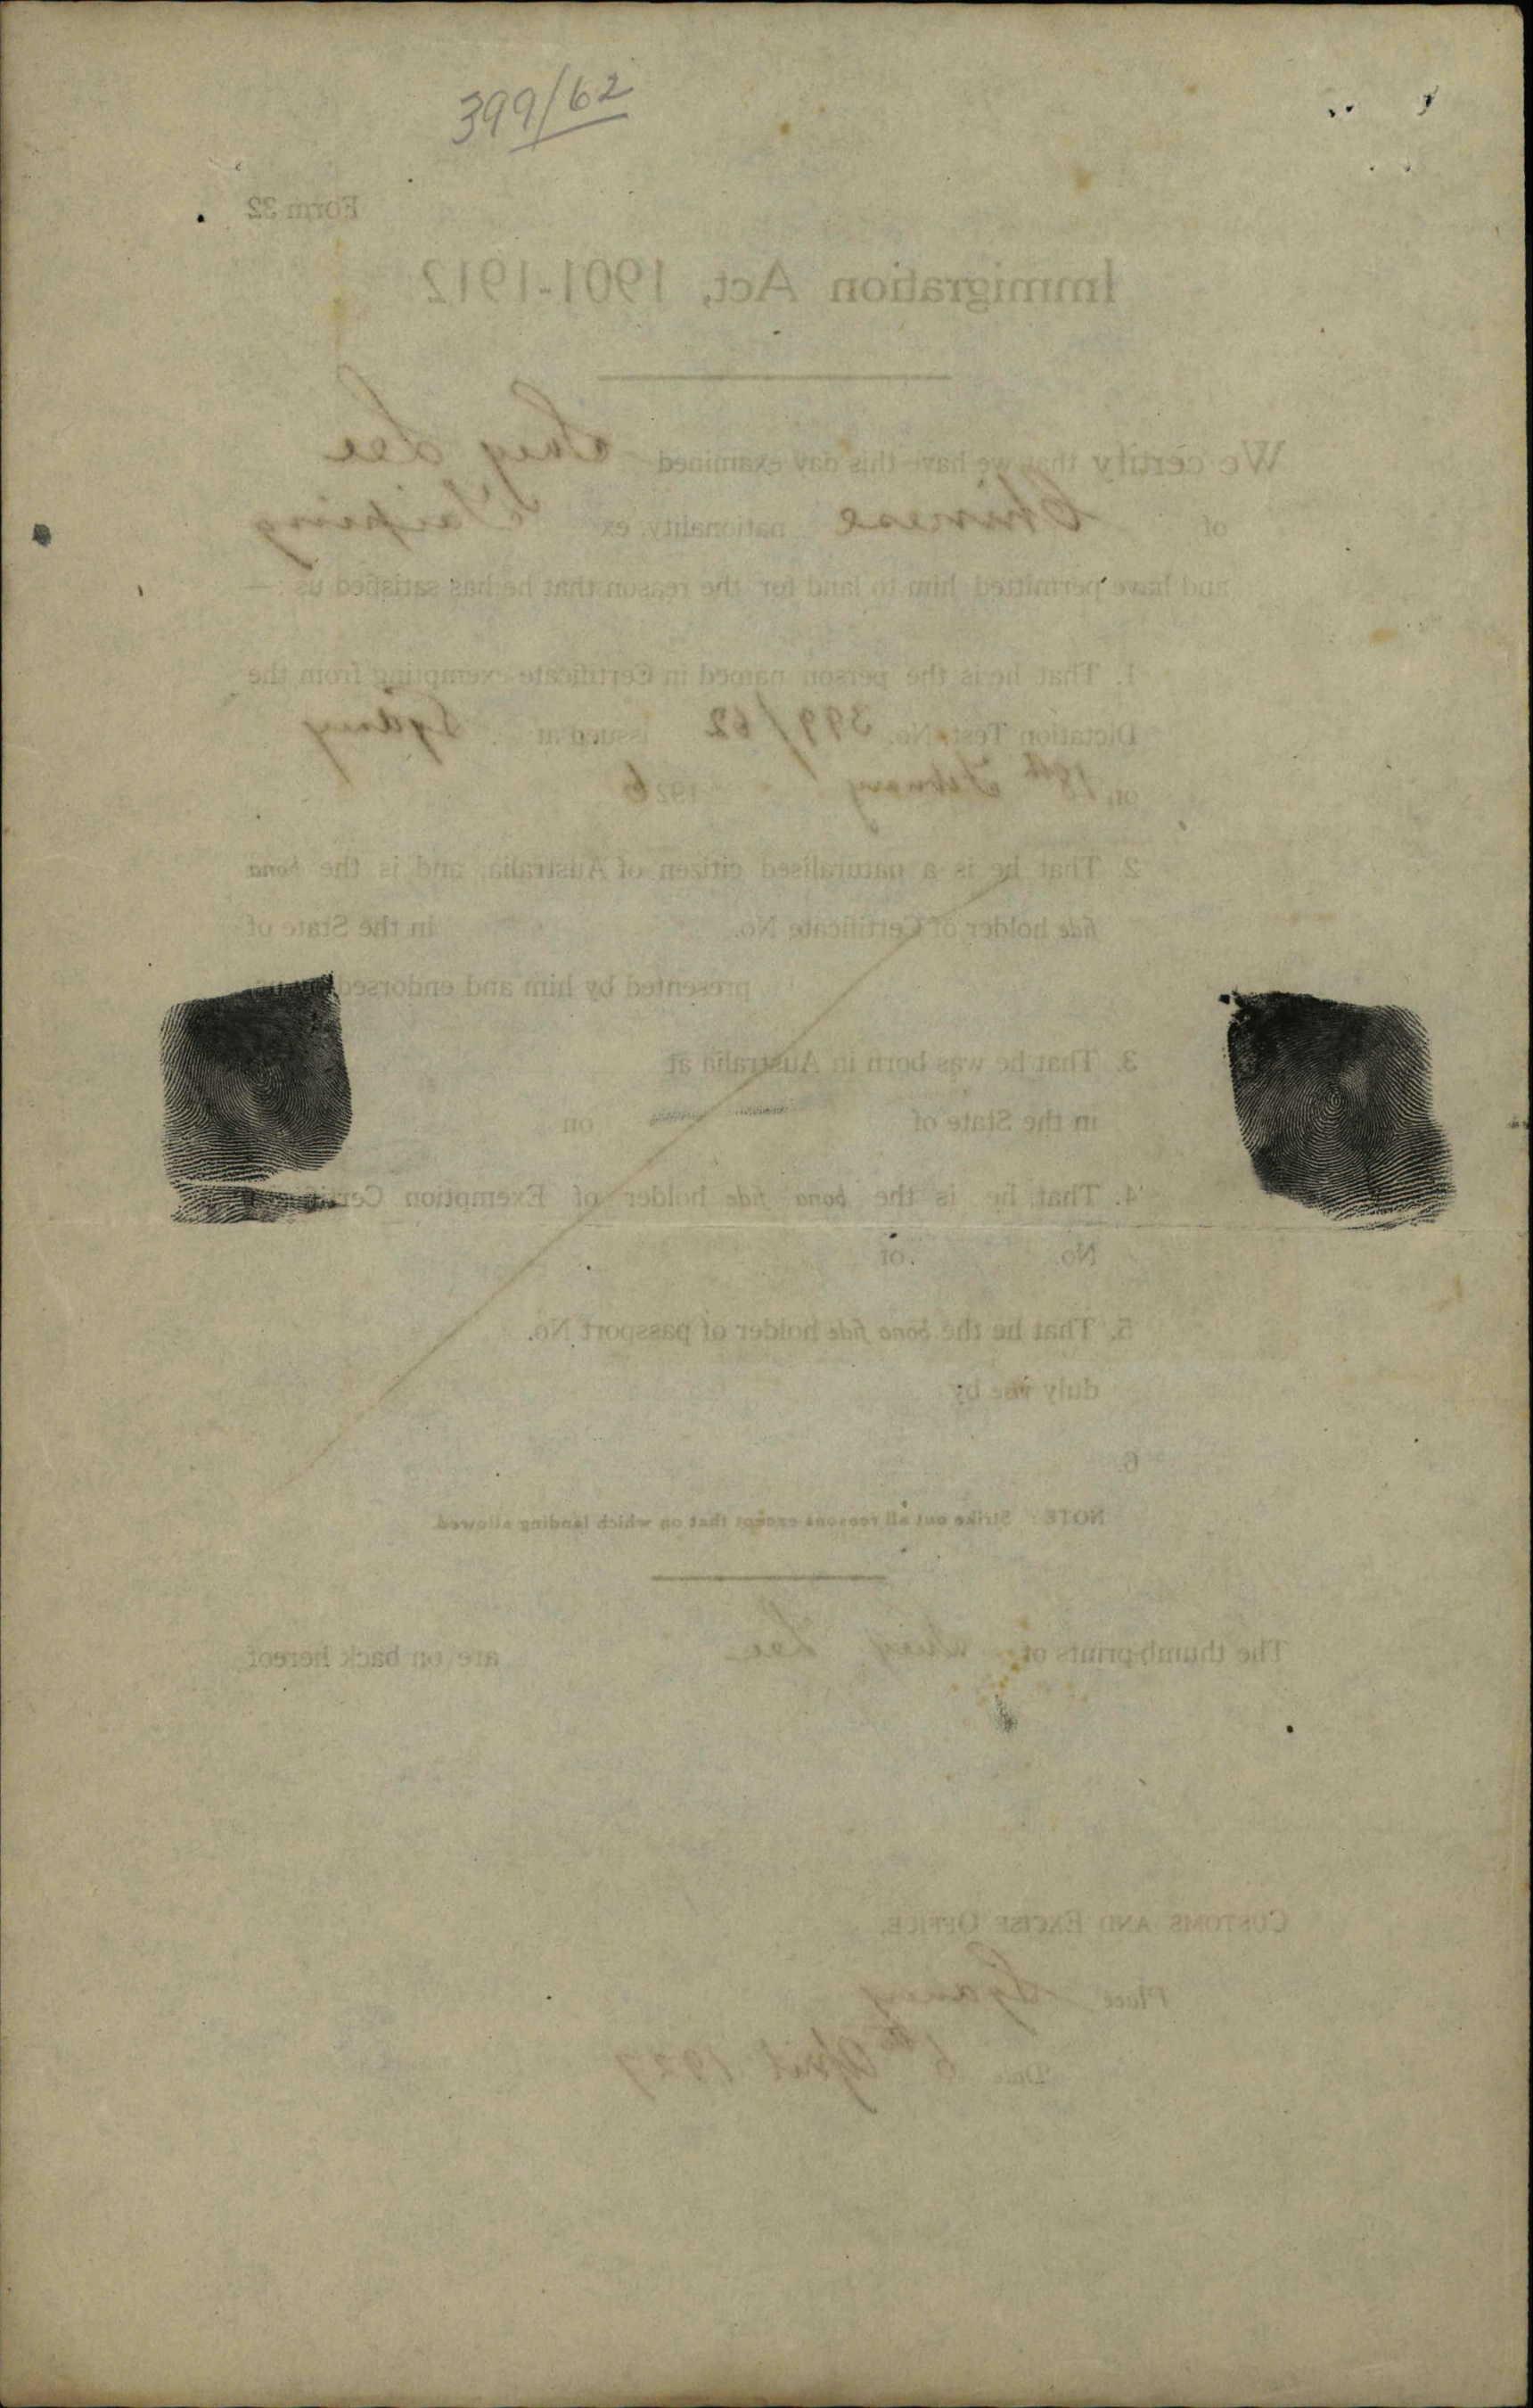 399/62
Form 32
Immigration Act, 1901-1912
We certify that we have this day examined Lee
of Chinese nationality, ex Taiping
and have permitted him to land for the reason that he has satisfied us :—
1. That he is the person named in Certificate exempting from the
Dictation Test, No. 399/62 issued at Sydney
on 18th February 1926
2. That he is a naturalised citizen of Australia, and is the bona
fide holder of Certificate No. in the State of
presented by him and endorsed
3. That he was born in Australia at
in the State of on
4. That he is the bona fide holder of Exemption
No. of
5. That he the bona fide holder of passport No.
duly vise by
6.
NOTE Strike out all reasons except that on which landing allowed
The thumb-prints of Lee are on back hereof
CUSTOMS AND EXCISE OFFICE,
Place Sydney
Date 6th April 1927